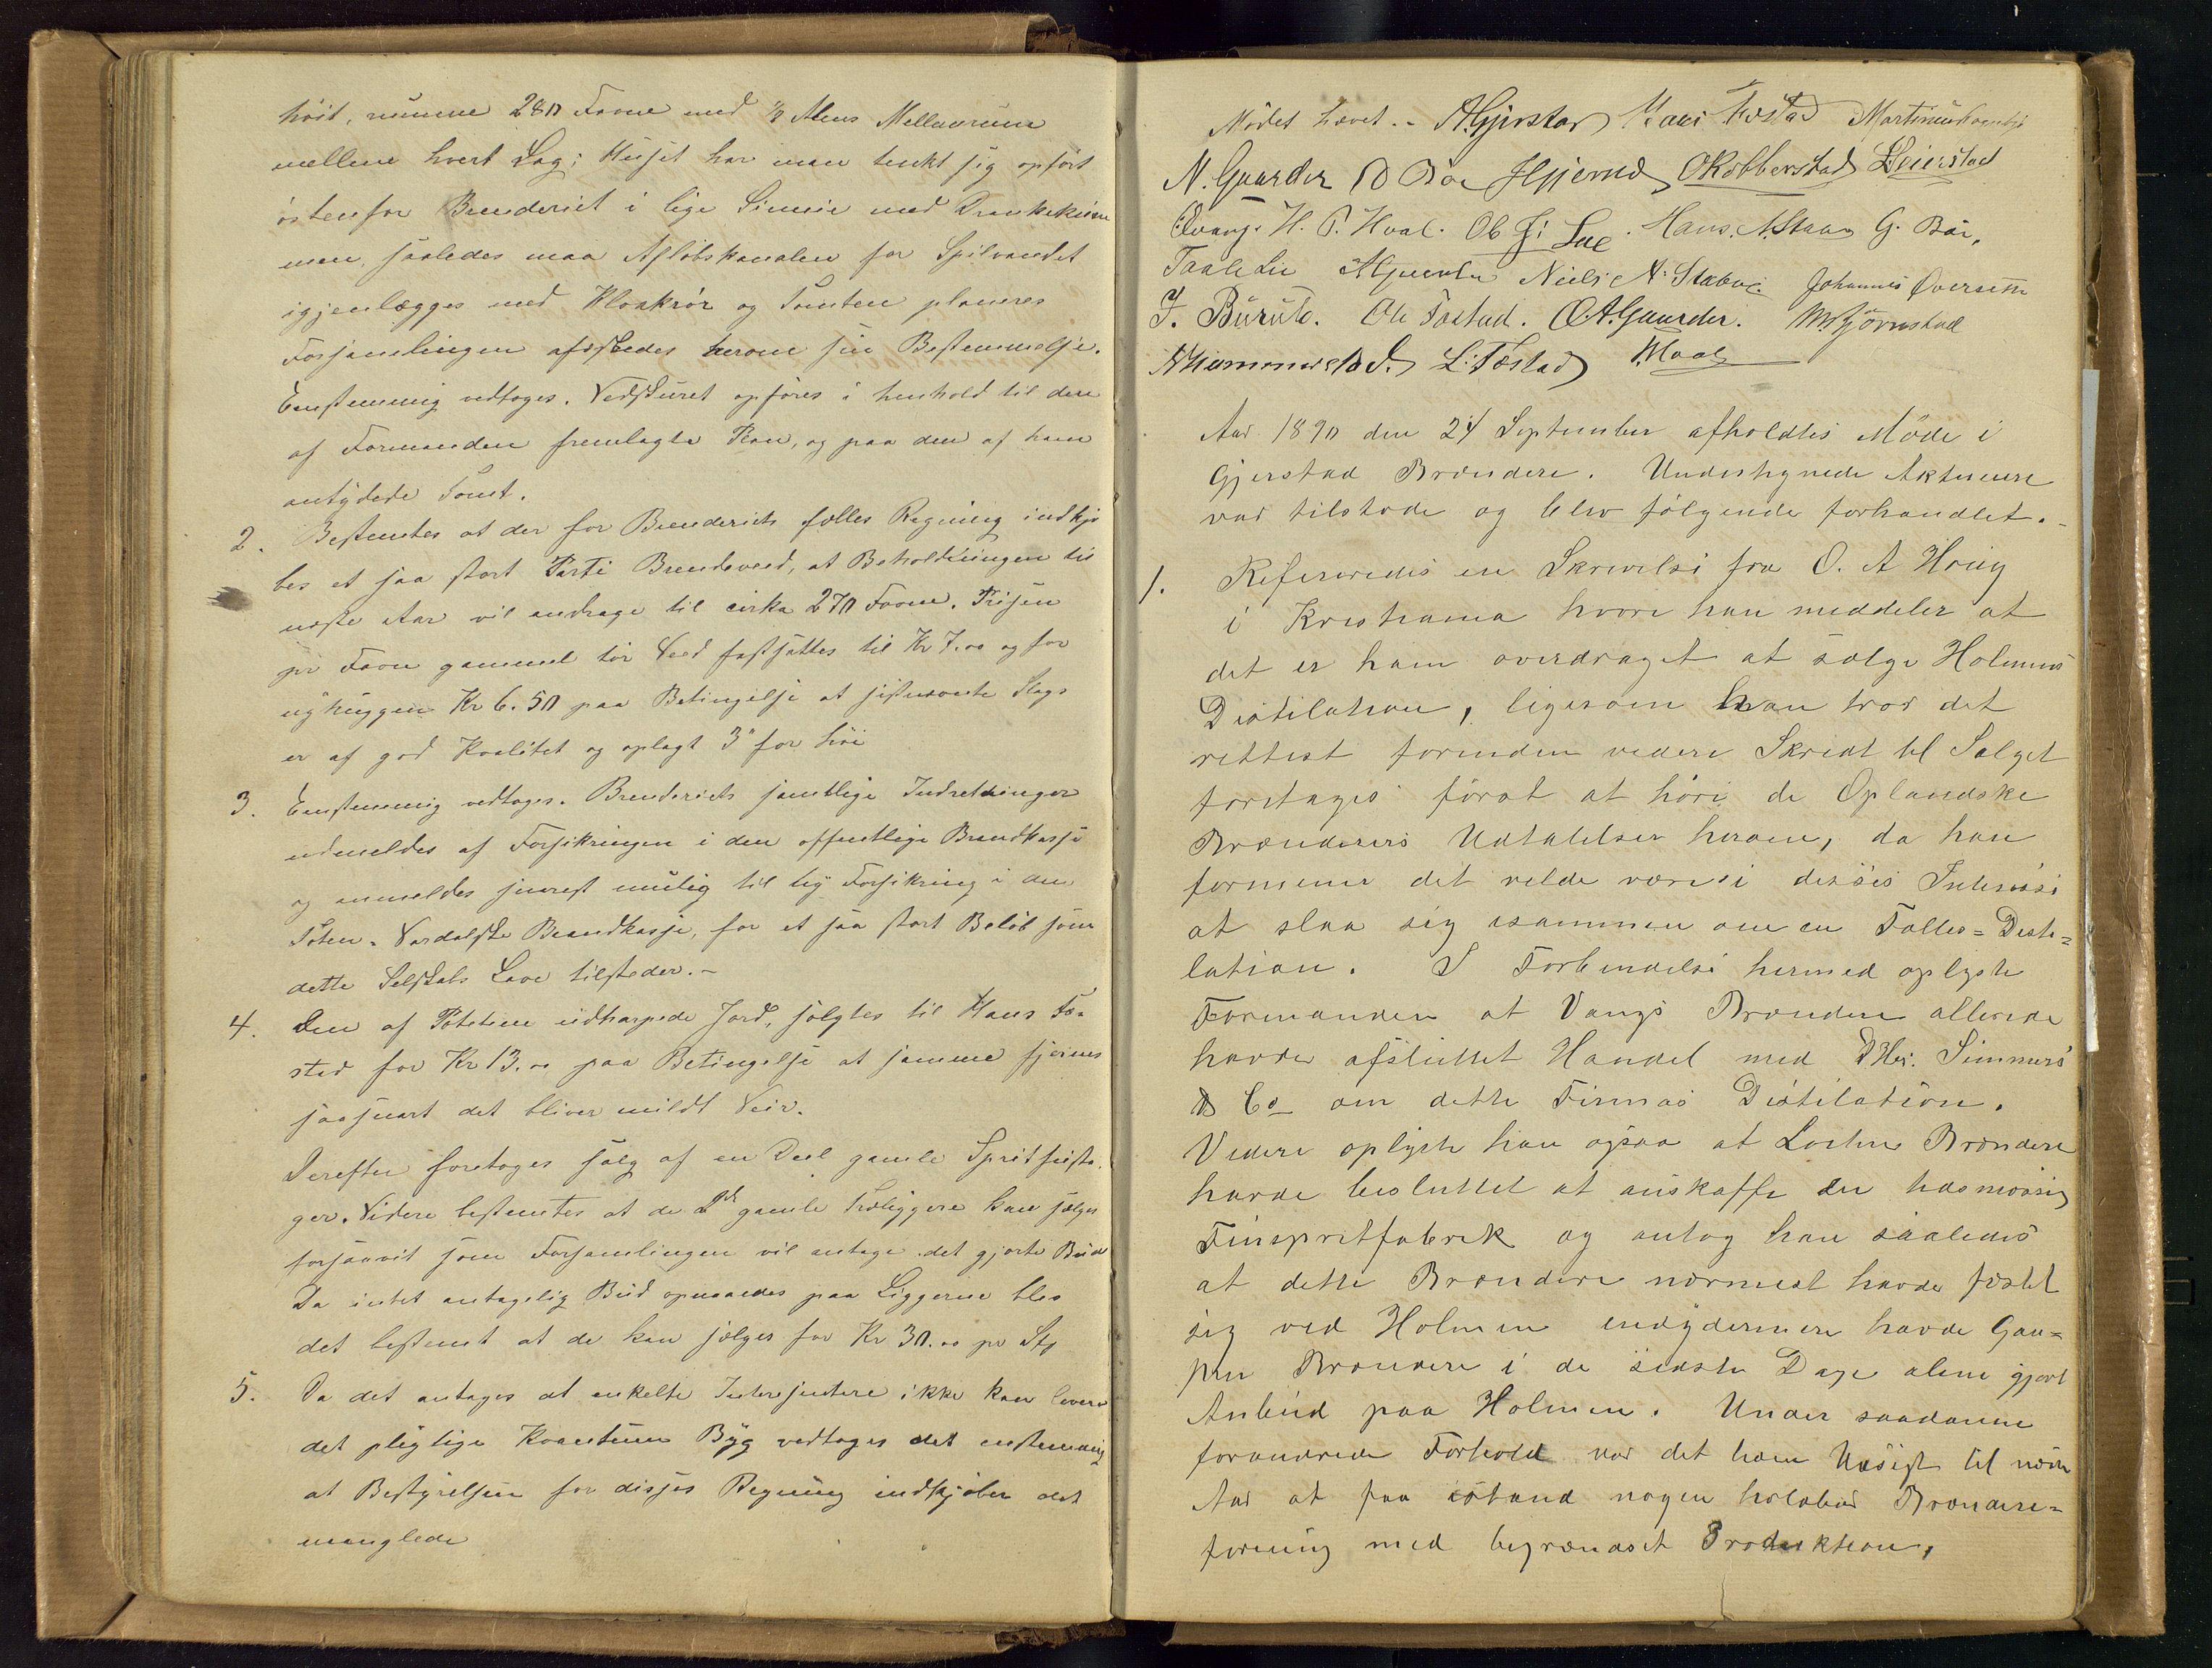 höit, rumme 280 Favne med ½ Alens Mellemrum
mellem hvert Lag; Huset har man tenkt sig opført
östenfor Brenderiet i lige Linnie med Drankekum
men, saaledes maa Aflöbskanalen for Spilvandet
igjenlægges med Kloakrör og Tomten planeres
Forsamlingen afæskedes herom sin Bestemmelse.
Enstemmig vedtoges. Vedskuret opføres i henhold til den
af Formanden fremlagte Plan, og paa den af ham
antydede Tomt.
2. Bestemtes at der for Brenderiets fælles Regning indkjö
bes et saa stort Parti Brendeved, at Beholdningen til
næste Aar vil andrage til cirka 270 Favne. Prisen
pr Favn gammel tör Ved fastsættes til Kr 7.00 og for
nyhuggen Kr 6.50 paa Betingelse at sistnævnte Slags
er af god Kvalitet og oplagt 3" for höi
3. Enstemmig vedtoges. Brenderiets samtlige Indretninger
udmeldes af Forsikringen i den offentlige Brandkasse
og anmeldes snarest mulig til ny Forsikring i den
Toten-Vardalske Brandkasse, for et saa stort Belöb som
dette Selskabs Love tilsteder.-
4. Den af Poteterne udharpede Jord, solgtes til Hans Fæ-
stad for Kr 13.00 paa Betingelse at samme fjernes
saasnart det bliver mildt Veir.
Derefter foretoges salg af en Deel gamle Spritfusta-
ger. Videre bestemtes at de 2de gamle Træliggere kan sælges
forsaavit som Forsamlingen vil antage det gjorte Bud
Da intet antagelig Bud opnaaedes paa Liggerne blev
det bestemt at de kan sælges for Kr 30.00 pr Stk
5. Da det antages at enkelte Interesentere ikke kan levere
det pligtige Kvantum Byg vedtoges det enstemmig
at Bestyrelsen for disses Regning indkjøber det
manglede
Mödet hævet.- A Gjerstad Hans Fæstad Martinus
N. Gaarder D Böe Gjerud O Kobberstad L Seierstad
Evang. H. P. Hoel. Ole J: Lee. Hans. N. Staav G. Böe,
Taale Lie A Niels A. Staav. Johannis Översetn
J. Burud. Ole Fæstad. O. A. Gaarder. M Björnstad
N Hammerstad. L. Fæstad Moal
Aar 1890 den 24 September afholdtes Möde i
Gjerstad Brænderi. Undertegnede Aktionere
var tilstede og blev fölgende forhandlet.-
1. Refereredes en Skrivelse fra O. A Höug
i Kristiania hvori han meddeler at
det er ham overdraget at sælge Holmens
Distilation, ligesom han tror det
rettest forinden videre Skridt til Salget
foretages först at höre de Oplandske
Brænderiers Udtalelser herom, da han
formener det vilde være i disses Interesse
at slaa sig isammen om en Fælles-Desti-
lation. I Forbindelse hermed oplyste
Formanden at Vangs Brænderi allerede
havde afsluttet Handel med DHr. Simmers
& Co om dette Firmas Distilation.
Videre oplyste han ogsaa at Loiten Brænderi
havde besluttet at anskaffe en tidsmæssig
Finspritfabrik og antog han saaledes
at dette Brænderi nærmest havde fæstet
sig ved Holmen endydermere havde Gau-
pen Brænderi i de sidste Dage alene gjort
Anbud paa Holmen. Under saadanne
forandrede Forhold var det liden Udsigt til næste
Aar at faa istand nogen holdbar Brænderi-
forening med begrændset Produktion,